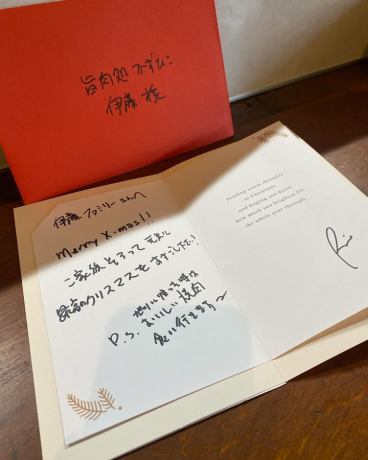 旨肉処 かずひこ
伊藤 様
伊藤 ファミリー さんへ
Merry X-mas!!
ご家族そろって元気に
最高のクリスマスをすごして下さい!
P.S. 帰った時は
おいしい焼肉
食い行きます〜
Sending warm thoughts
at Christmas
and hoping you know
how much you brighten life
the whole year through.